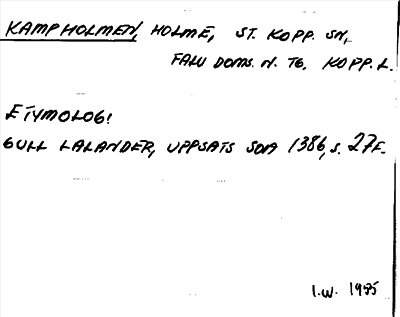 KAMPHOLMEN, HOLME, ST. KOPP. SN,
FALU DOMS. N. TG. KOPP. L.
ETYMOLOGI
GULL LALANDER, UPPSATS SOA 1386, S. 27F.
I.W. 1985